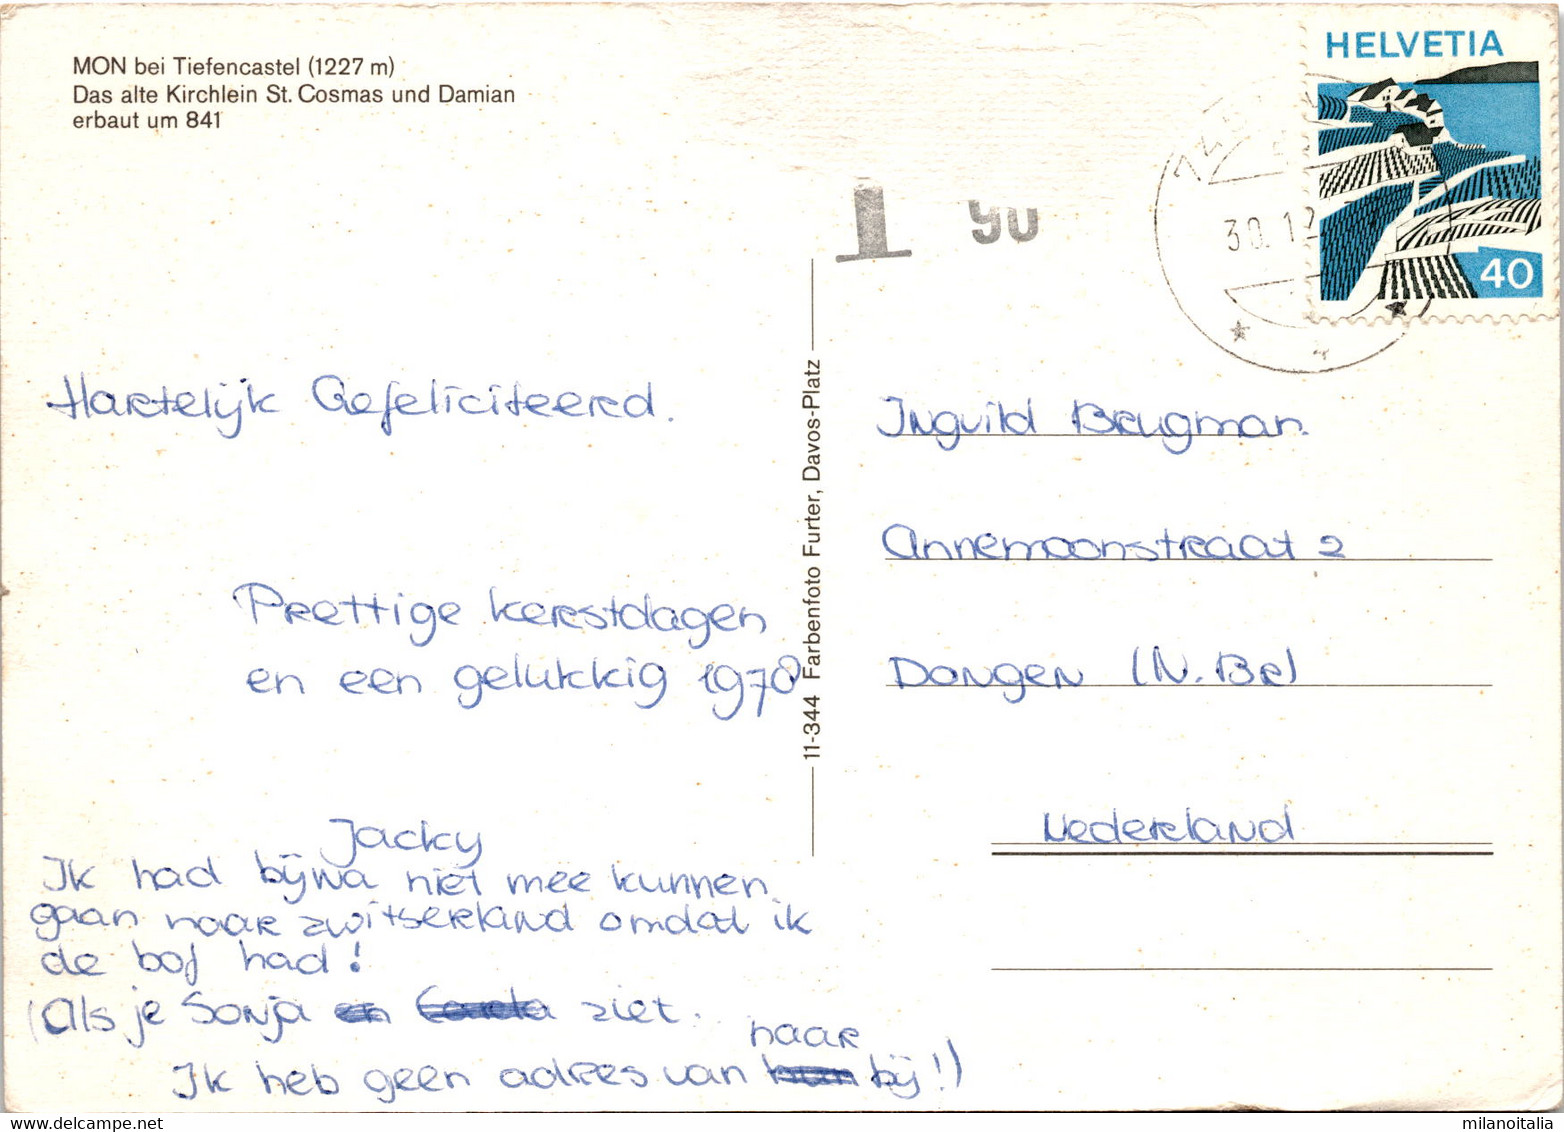 MON bei Tiefencastel (1227 m)
Das alte Kirchlein St. Cosmas und Damian
erbaut um 841
HELVETIA
40
T 90
30.12
Hartelijk Gefeliciteerd.
Prettige kerstdagen
en een gelukkig 1978
Jacky
Ik had bijna niet mee kunnen
gaan naar zwitserland omdat ik
de bof had!
(Als je Sonja en Carola ziet.
naar
Ik heb geen adres van bij!)
11-344 Farbenfoto Furter, Davos-Platz
Ingvild Brugman.
Annemoonstraat 2
Dongen (N.Br)
Nederland
milanoitalia
www.delcampe.net